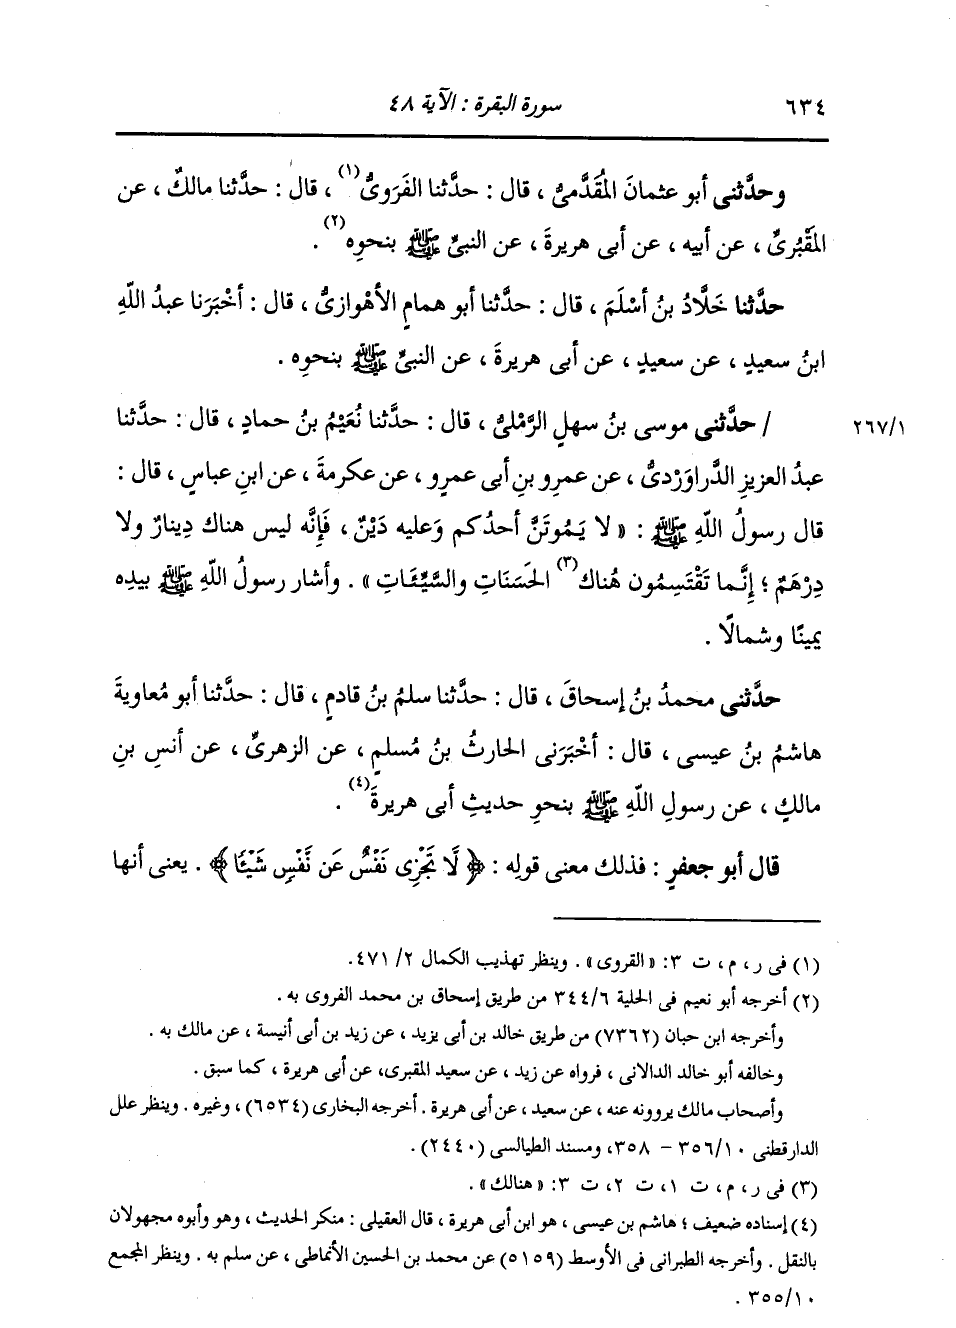 ٦٣٤ سورة البقرة : الآية ٤٨
وحدَّثنى أبو عثمانَ المُقَدَّمىُّ ، قال : حدَّثنا الفَرَوىُّ(١) ، قال : حدَّثنا مالكٌ ، عن
المَقْبُرىِّ ، عن أبيه ، عن أبى هريرةَ ، عن النبىِّ ﷺ بنحوِه(٢) .
حدَّثنا خَلَّادُ بنُ أسْلَمَ ، قال : حدَّثنا أبو همامٍ الأهْوازىُّ ، قال : أخْبَرَنا عبدُ اللَّهِ
ابنُ سعيدٍ ، عن سعيدٍ ، عن أبى هريرةَ ، عن النبىِّ ﷺ بنحوِه .
٢٦٧/١ / حدَّثنى موسى بنُ سهلٍ الرَّمْلىُّ ، قال : حدَّثنا نُعَيْمُ بنُ حمادٍ ، قال : حدَّثنا
عبدُ العزيزِ الدَّراوَرْدىُّ ، عن عمرِو بنِ أبى عمرٍو ، عن عكرمةَ ، عن ابنِ عباسٍ ، قال :
قال رسولُ اللَّهِ ﷺ : « لا يَمُوتَنَّ أحدُكم وَعليه دَيْنٌ ، فَإِنَّه ليس هناك دِينارٌ ولا
دِرْهَمٌ ؛ إِنَّما تَقْتَسِمُون هُناك(٣) الحَسَنَاتِ والسَّيِّئَاتِ » . وأشار رسولُ اللَّهِ ﷺ بيدِه
يمينًا وشمالًا .
حدَّثنى محمدُ بنُ إسحاقَ ، قال : حدَّثنا سلمُ بنُ قادمٍ ، قال : حدَّثنا أبو مُعاويةَ
هاشمُ بنُ عيسى ، قال : أخْبَرَنى الحارثُ بنُ مُسلمٍ ، عن الزهرىِّ ، عن أنسِ بنِ
مالكٍ ، عن رسولِ اللَّهِ ﷺ بنحوِ حديثِ أبى هريرةَ(٤) .
قال أبو جعفرٍ : فذلك معنى قولِه : ﴿ لَّا تَجْزِى نَفْسٌ عَن نَّفْسٍ شَيْئًا ﴾ . يعنى أنها
(١) فى ر ، م ، ت ٣: «القروى» . وينظر تهذيب الكمال ٢/ ٤٧١.
(٢) أخرجه أبو نعيم فى الحلية ٣٤٤/٦ من طريق إسحاق بن محمد الفروى به .
وأخرجه ابن حبان (٧٣٦٢) من طريق خالد بن أبى يزيد ، عن زيد بن أبى أنيسة ، عن مالك به .
وخالفه أبو خالد الدالانى ، فرواه عن زيد ، عن سعيد المقبرى، عن أبى هريرة ، كما سبق .
وأصحاب مالك يروونه عنه ، عن سعيد ، عن أبى هريرة . أخرجه البخارى (٦٥٣٤) ، وغيره . وينظر علل
الدارقطنى ٣٥٦/١٠ – ٣٥٨، ومسند الطيالسى (٢٤٤٠).
(٣) فى ر ، م، ت ١، ت ٢، ت ٣: «هنالك» .
(٤) إسناده ضعيف ؛ هاشم بن عيسى ، هو ابن أبى هريرة ، قال العقيلى : منكر الحديث ، وهو وأبوه مجهولان
بالنقل . وأخرجه الطبرانى فى الأوسط (٥١٥٩) عن محمد بن الحسين الأنماطى ، عن سلم به . وينظر المجمع
٣٥٥/١٠ .